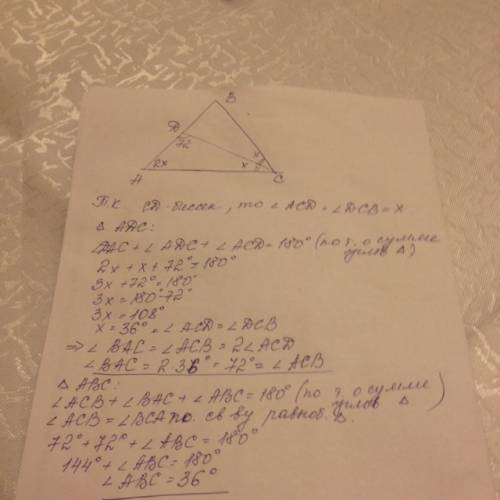 B
D
72
A
2x
x
x
C
Т.к. CD-биссек., то ∠ACD = ∠DCB = x
△ ADC:
∠DAC + ∠ADC + ∠ACD = 180° (по т. о сумме
углов △)
2x + x + 72° = 180°
3x + 72° = 180°
3x = 180°-72°
3x = 108°
x = 36° = ∠ACD = ∠DCB
⇒ ∠ BAC = ∠ACB = 2∠ACD
∠ BAC = 2·36° = 72° = ∠ACB
△ ABC:
∠ACB + ∠BAC + ∠ABC = 180° (по т. о сумме
углов △)
∠ACB = ∠BCA по св-ву равноб. △.
72° + 72° + ∠ABC = 180°
144° + ∠ABC = 180°
∠ABC = 36°